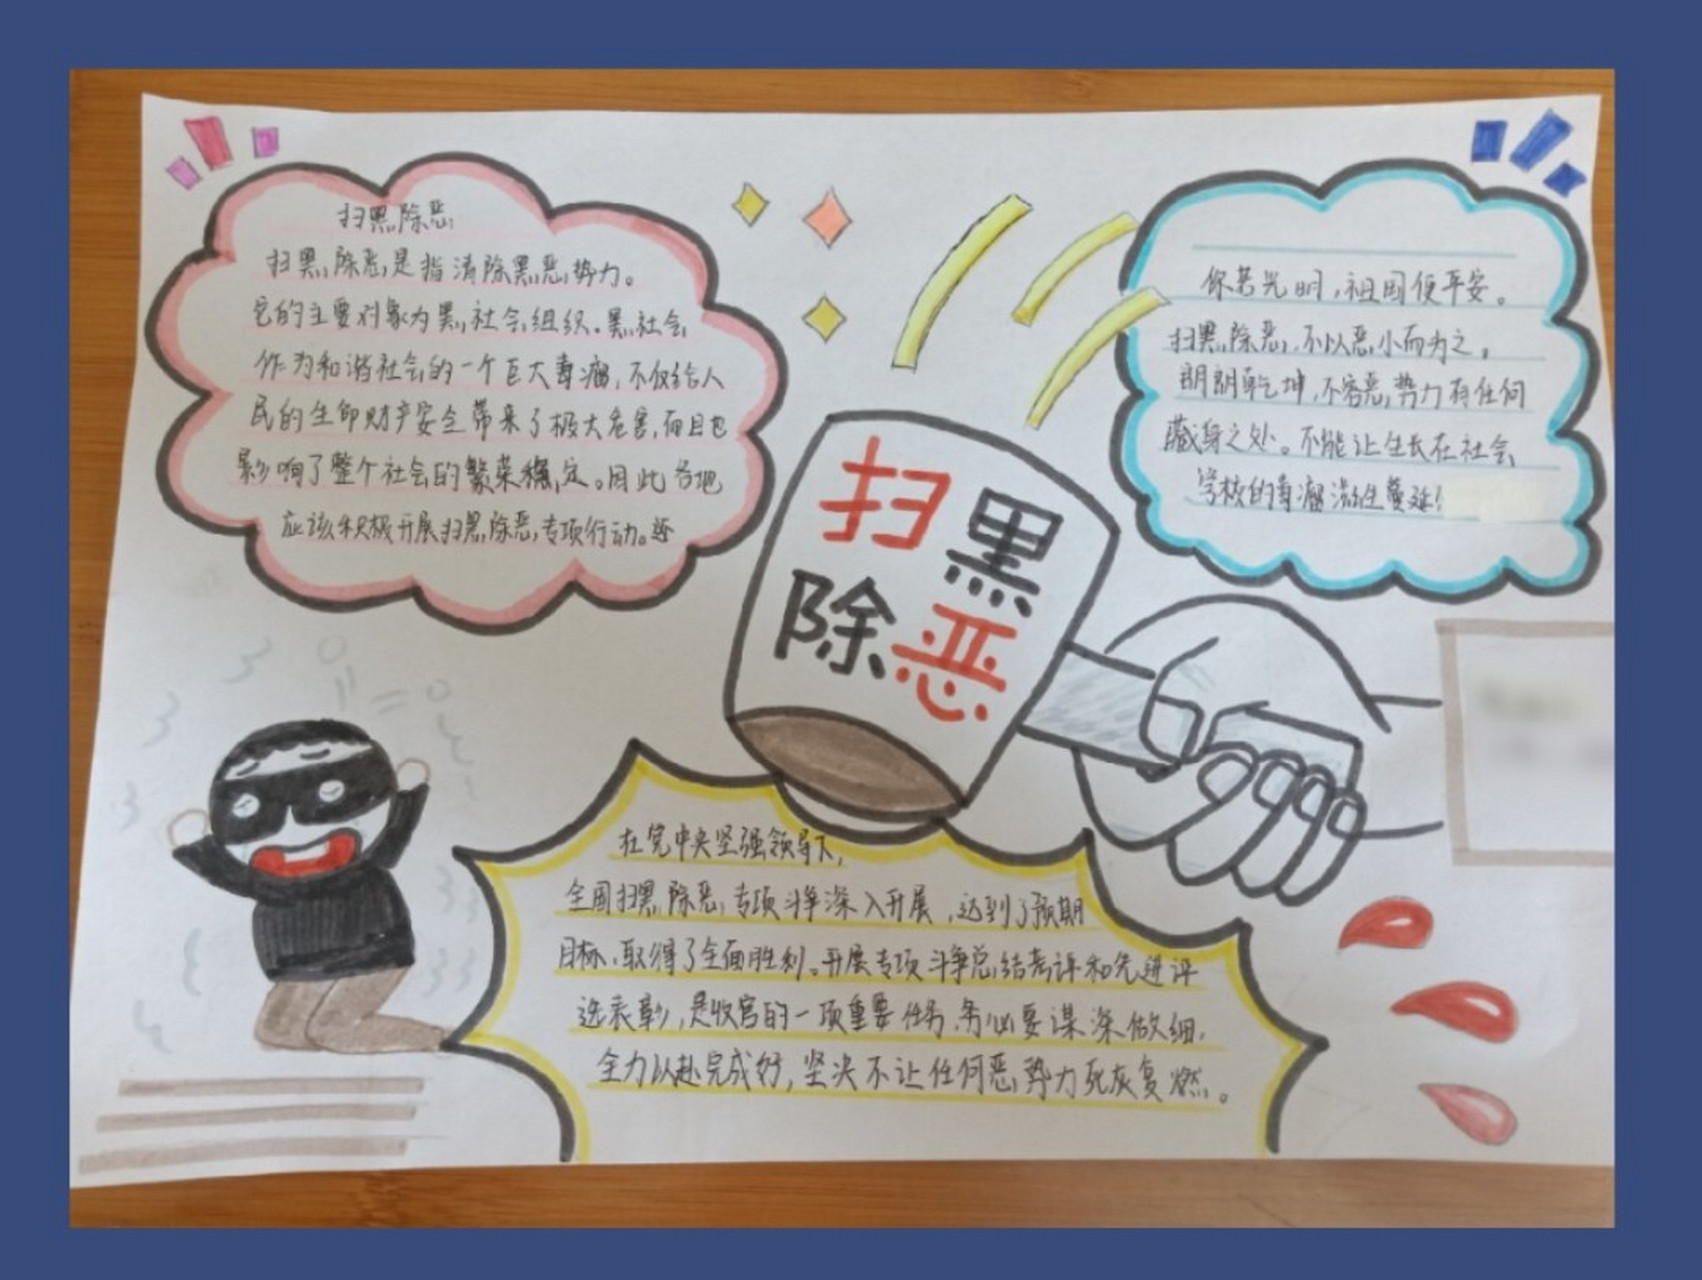 扫黑除恶
扫黑除恶是指清除黑恶势力。
它的主要对象为黑社会组织。黑社会
作为和谐社会的一个巨大毒瘤,不仅给人
民的生命财产安全带来了极大危害,而且也
影响了整个社会的繁荣稳定。因此各地
应该积极开展扫黑除恶专项行动。还
你若光明,祖国便平安。
扫黑除恶,不以恶小而为之。
朗朗乾坤,不容恶势力有任何
藏身之处。不能让生长在社会
学校的毒瘤滋生蔓延!
扫黑
除恶
在党中央坚强领导下,
全国扫黑除恶专项斗争深入开展,达到了预期
目标,取得了全面胜利。开展专项斗争总结考评和先进评
选表彰,是收官的一项重要任务,务必要谋深做细,
全力以赴完成好,坚决不让任何恶势力死灰复燃。